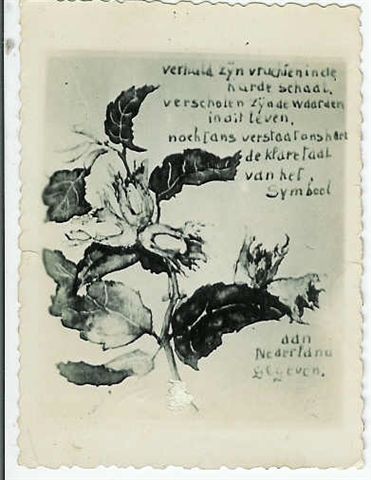 verhuld zÿn vruchten in de
harde schaal,
verscholen zÿn de waarden
in dit leven,
nochtans verstaat ons hart
de klare taal
van het
Symbool
aan
Nederland
gegeven.